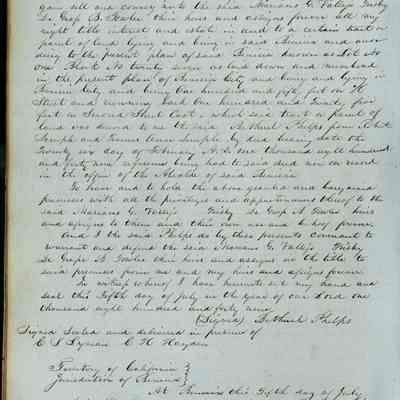 gain sell and convey unto the said Mariano G. Vallejo Frisby
De Grop B. Fowler their heirs and assigns forever all my
right title interest and estate in and to a certain tract or
parcel of land lying and being in said Benicia and accor
ding to the present plan of said Benicia known as Lot No
one Block No twenty seven as laid down and numbered
in the present plan of Benicia City and being and lying in
Benicia City and being one hundred and fifty feet on H
Street and running back one hundred and twenty five
feet on Second Street East, which said tract or parcel of
land was deeded to me the said Bethuel Phelps from Robert
Semple and Frances Anna Semple by deed bearing date the
twenty six day of February A.D. one thousand eight hundred
and forty nine reference being had to said deed now on record
in the office of the Alcalde of said Benicia
To have and to hold the above granted and bargained
premises with all the privileges and appurtenances thereof to the
said Mariano G. Vallejo Frisby De Grop A Fowler heirs
and assigns to them and their own use and behoof forever
And I the said Phelps do by these presents covenant to
warrant and defend the said Mariano G. Vallejo Frisby
De Grop A Fowler their heirs and assigns in the title to
said premises from me and my heirs and assigns forever
In witness whereof I have hereunto set my hand and
seal this Fifth day of July in the year of our Lord one
thousand eight hundred and forty nine
(Signed) Bethuel Phelps
Signed Sealed and delivered in presence of
C H Hayden
Territory of California }
Jurisdiction of Benicia }
At Benicia this Fifth day of July